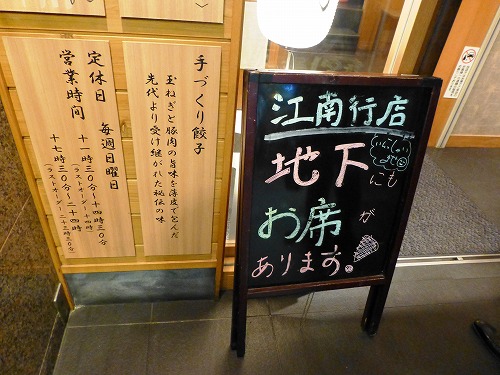 手づくり餃子
玉ねぎと豚肉の旨味を薄皮で包んだ
先代より受け継がれた秘伝の味
定休日 毎週日曜日
営業時間 十一時三〇分〜十四時三〇分
(ラストオーダー十四時)
十七時三〇分〜二十四時
(ラストオーダー二十三時三〇分)
江南行店
地下にも
お席が
あります。